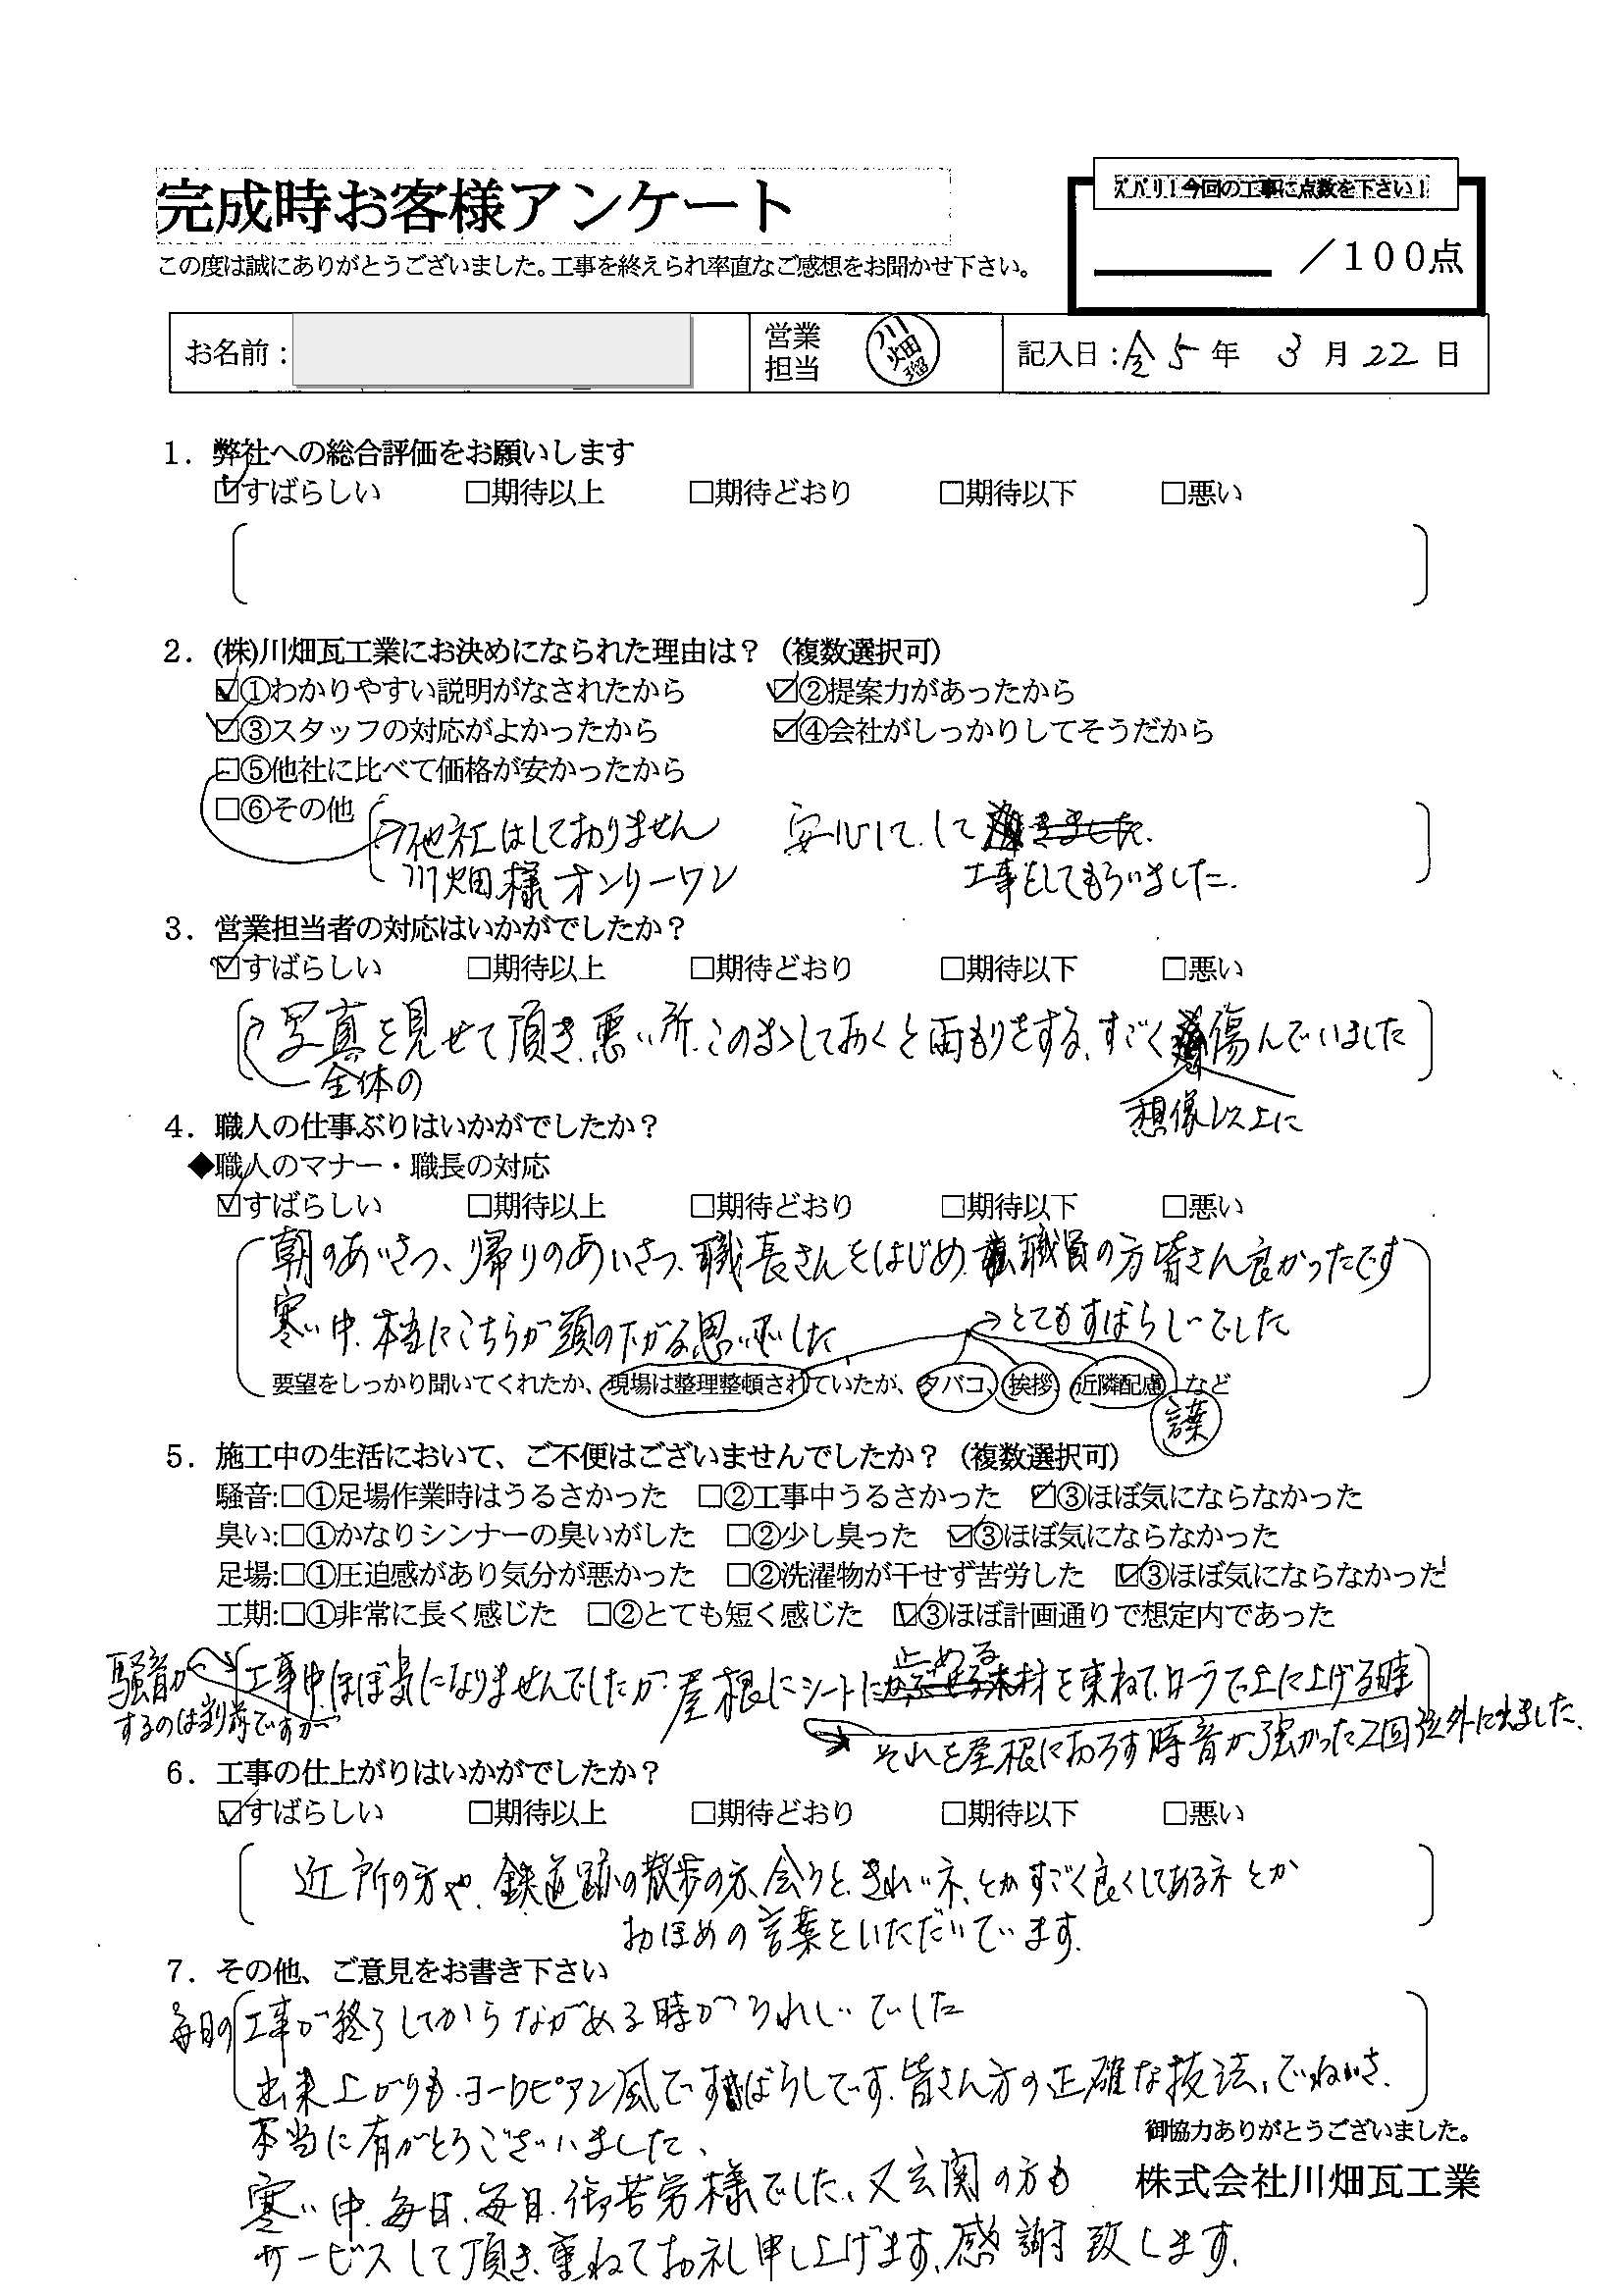 完成時お客様アンケート
この度は誠にありがとうございました。工事を終えられ率直なご感想をお聞かせ下さい。
ズバリ！今回の工事に点数を下さい！
／１００点
お名前：
営業担当
川畑瑠
記入日：令5年 3月22日
１．弊社への総合評価をお願いします
☑すばらしい □期待以上 □期待どおり □期待以下 □悪い
２．(株)川畑瓦工業にお決めになられた理由は？（複数選択可）
☑①わかりやすい説明がなされたから ☑②提案力があったから
☑③スタッフの対応がよかったから ☑④会社がしっかりしてそうだから
□⑤他社に比べて価格が安かったから
□⑥その他
他社はしておりません 安心して、して
川畑様オンリーワン 工事をしてもらいました。
３．営業担当者の対応はいかがでしたか？
☑すばらしい □期待以上 □期待どおり □期待以下 □悪い
写真を見せて頂き、悪い所、このまゝしておくと雨もりをする、すごく傷んでいました
全体の
想像以上に
４．職人の仕事ぶりはいかがでしたか？
◆職人のマナー・職長の対応
☑すばらしい □期待以上 □期待どおり □期待以下 □悪い
朝のあいさつ、帰りのあいさつ、職長さんをはじめ、職員の方皆さん良かったです
寒い中、本当にこちらが頭の下がる思いでした
→とてもすばらしいでした
要望をしっかり聞いてくれたか、現場は整理整頓されていたが、タバコ、挨拶、近隣配慮 など
言葉
５．施工中の生活において、ご不便はございませんでしたか？（複数選択可）
騒音:□①足場作業時はうるさかった □②工事中うるさかった ☑③ほぼ気にならなかった
臭い:□①かなりシンナーの臭いがした □②少し臭った ☑③ほぼ気にならなかった
足場:□①圧迫感があり気分が悪かった □②洗濯物が干せず苦労した ☑③ほぼ気にならなかった
工期:□①非常に長く感じた □②とても短く感じた ☑③ほぼ計画通りで想定内であった
騒音が
するのは当り前ですが
止める
工事中、ほぼ気になりませんでしたが、屋根にシートにかぶせる木材を束ねて、ローラで上に上げる時
それを屋根におろす時音が強かった2回位外に出ました。
６．工事の仕上がりはいかがでしたか？
☑すばらしい □期待以上 □期待どおり □期待以下 □悪い
近所の方や、鉄道跡の散歩の方、会うと、きれいネ、とかすごく良くしてあるネとか
おほめの言葉をいただいています。
７．その他、ご意見をお書き下さい
毎日の工事が終了してからながめる時がうれしいでした
出来上がりも、ヨーロピアン風ですばらしいです。皆さん方の正確な技法、でねいさ、
本当に有がとうございました、
寒い中、毎日、毎日、御苦労様でした、又玄関の方も
サービスして頂き、重ねてお礼申し上げます、感謝致します。
御協力ありがとうございました。
株式会社川畑瓦工業